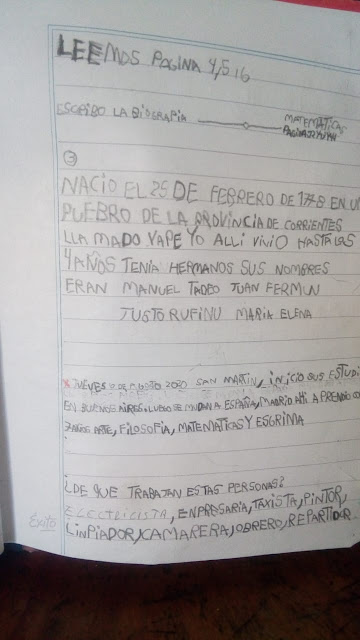 LEEMOS PAGINA 4,5 16
ESCRIBO LA BIOGRAFIA
MATEMATICAS
PAGINA
3
NACIO EL 25 DE FEBRERO DE 1778 EN UN
PUEBRO DE LA PROVINCIA DE CORRIENTES
LLAMADO YAPE YO ALLI VIVIO HASTA LOS
4 AÑOS TENIA HERMANOS SUS NOMBRES
ERAN MANUEL TADEO JUAN FERMIN
JUSTO RUFINU MARIA ELENA
X JUEVES DE AGOSTO 2020 SAN MARTIN, INICIO SUS ESTUDI
EN BUENOS AIRES. LUEGO SE MUDAN A ESPAÑA, MADRID AHI APRENDIO
ARTE, FILOSOFIA, MATEMATICAS Y ESGRIMA
¿DE QUE TRABAJAN ESTAS PERSONAS?
ELECTRICISTA, ENPRESARIA, TAXISTA, PINTOR,
LINPIADOR, CAMARERA, OBRERO, REPARTIDOR
Éxito